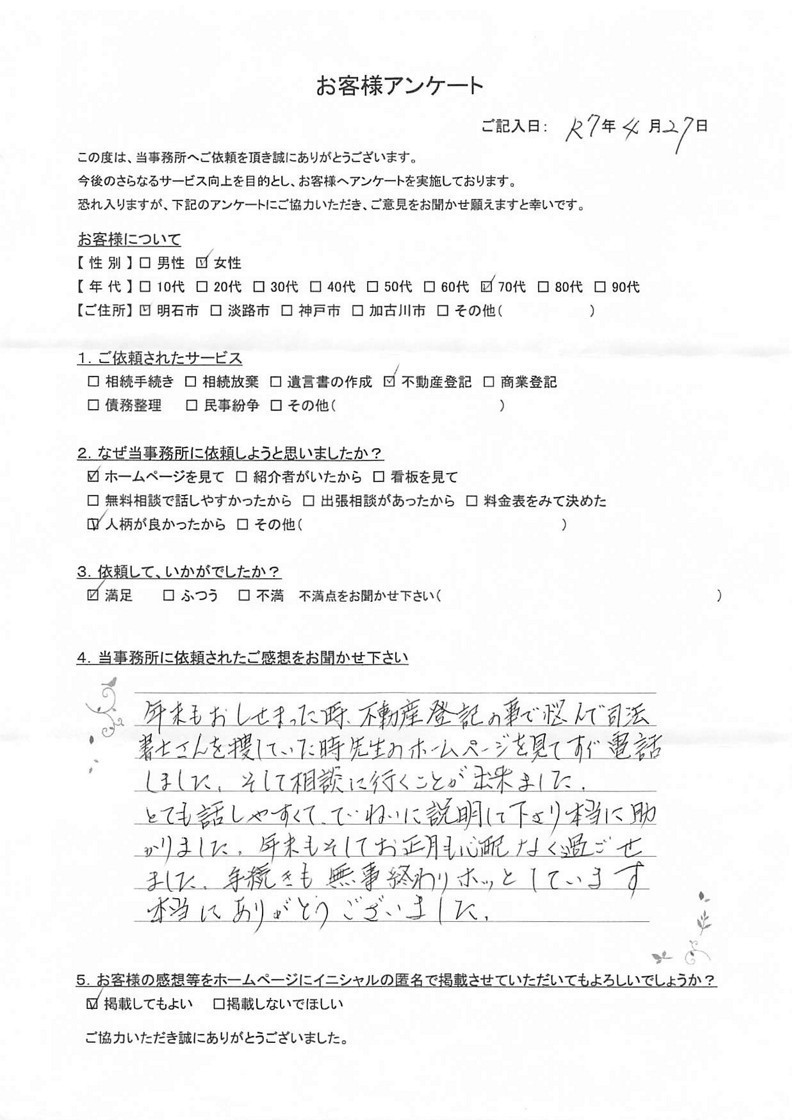 お客様アンケート
ご記入日： R7年 4月 27日
この度は、当事務所へご依頼を頂き誠にありがとうございます。
今後のさらなるサービス向上を目的とし、お客様へアンケートを実施しております。
恐れ入りますが、下記のアンケートにご協力いただき、ご意見をお聞かせ願えますと幸いです。
お客様について
【 性 別 】□ 男性 ☑ 女性
【 年 代 】□ 10代 □ 20代 □ 30代 □ 40代 □ 50代 □ 60代 ☑ 70代 □ 80代 □ 90代
【ご住所】☑ 明石市 □ 淡路市 □ 神戸市 □ 加古川市 □ その他（ ）
１．ご依頼されたサービス
□ 相続手続き □ 相続放棄 □ 遺言書の作成 ☑ 不動産登記 □ 商業登記
□ 債務整理 □ 民事紛争 □ その他（ ）
２．なぜ当事務所に依頼しようと思いましたか？
☑ ホームページを見て □ 紹介者がいたから □ 看板を見て
□ 無料相談で話しやすかったから □ 出張相談があったから □ 料金表をみて決めた
☑ 人柄が良かったから □ その他（ ）
３．依頼して、いかがでしたか？
☑ 満足 □ ふつう □ 不満 不満点をお聞かせ下さい（ ）
４．当事務所に依頼されたご感想をお聞かせ下さい
年末もおしせまった時、不動産登記の事で悩んで司法
書士さんを捜していた時先生のホームページを見てすぐ電話
しました。そして相談に行くことが出来ました。
とても話しやすくて、ていねいに説明して下さり本当に助
かりました。年末もそしてお正月も心配なく過ごせ
ました。手続きも無事終わりホッとしています
本当にありがとうございました。
５．お客様の感想等をホームページにイニシャルの匿名で掲載させていただいてもよろしいでしょうか？
☑ 掲載してもよい □掲載しないでほしい
ご協力いただき誠にありがとうございました。